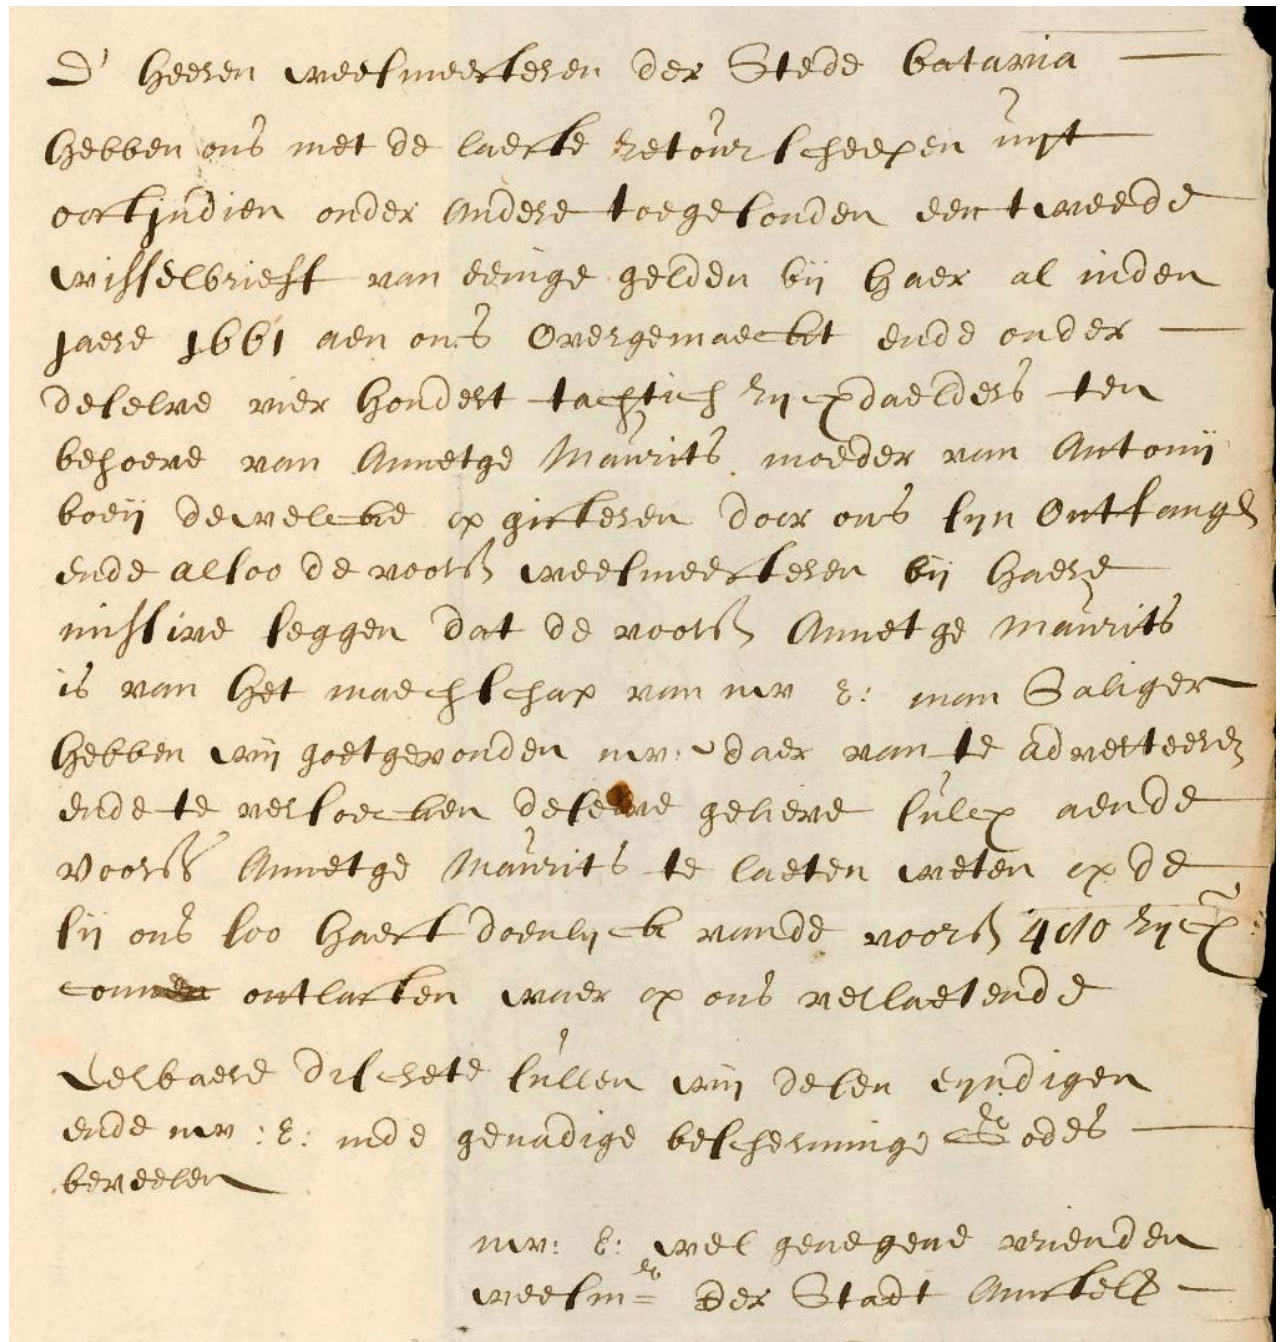 D' heeren weesmeesteren der Stede batavia
hebben ons met de laeste retourscheepen uijt
oostjndien onder andere toegesonden een tweede
wisselbrieff van eenige gelden bij haer al inden
jaere 1661 aen ons overgemaeckt ende onder
deselve vier hondert tachtich rijcxdaelders ten
behoeve van Annetge Maurits moeder van Antonij
boeij dewelcke op gisteren door ons sijn ontfangen
ende alsoo de voors weesmeesteren bij haere
missive seggen dat de voors Annetge maurits
is van het maechschap van uw E: man Saliger
hebben wij goetgevonden uw: daer van te adverteeren
ende te versoecken deselve gelieve sulcx aende
voors Annetge Maurits te laeten weten op de
sij ons soo haest doenlijck vande voors 480 rijcx:
connen ontlasten waer op ons verlaetende
Eerbaere discrete sullen wij desen eyndigen
ende uw: E: inde genadige bescherminge Godes
beveelen
uw: E: wel genegene vrienden
weesmren der Stadt Amsteld